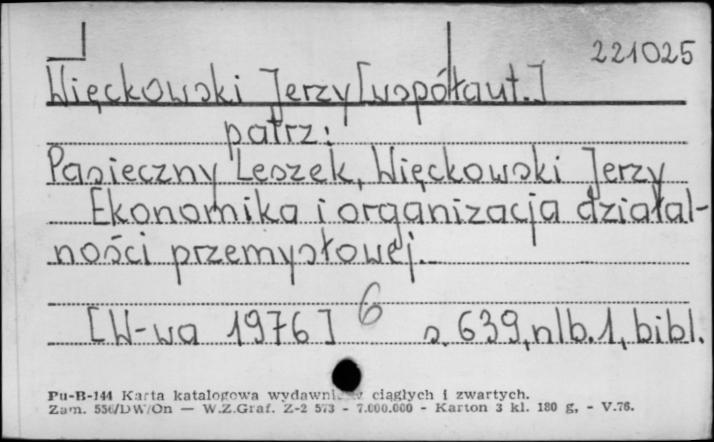 221025
Więckowski Jerzy [współaut.]
patrz:
Pasieczny Leszek, Więckowski Jerzy
Ekonomika i organizacja działal-
ności przemysłowej.
[W-wa 1976] 6 s. 639, nlb. 1, bibl.
Pu-B-144 Karta katalogowa wydawnictw ciągłych i zwartych.
Zam. 556/DW/On — W.Z.Graf. Z-2 573 - 7.000.000 - Karton 3 kl. 180 g, - V.76.